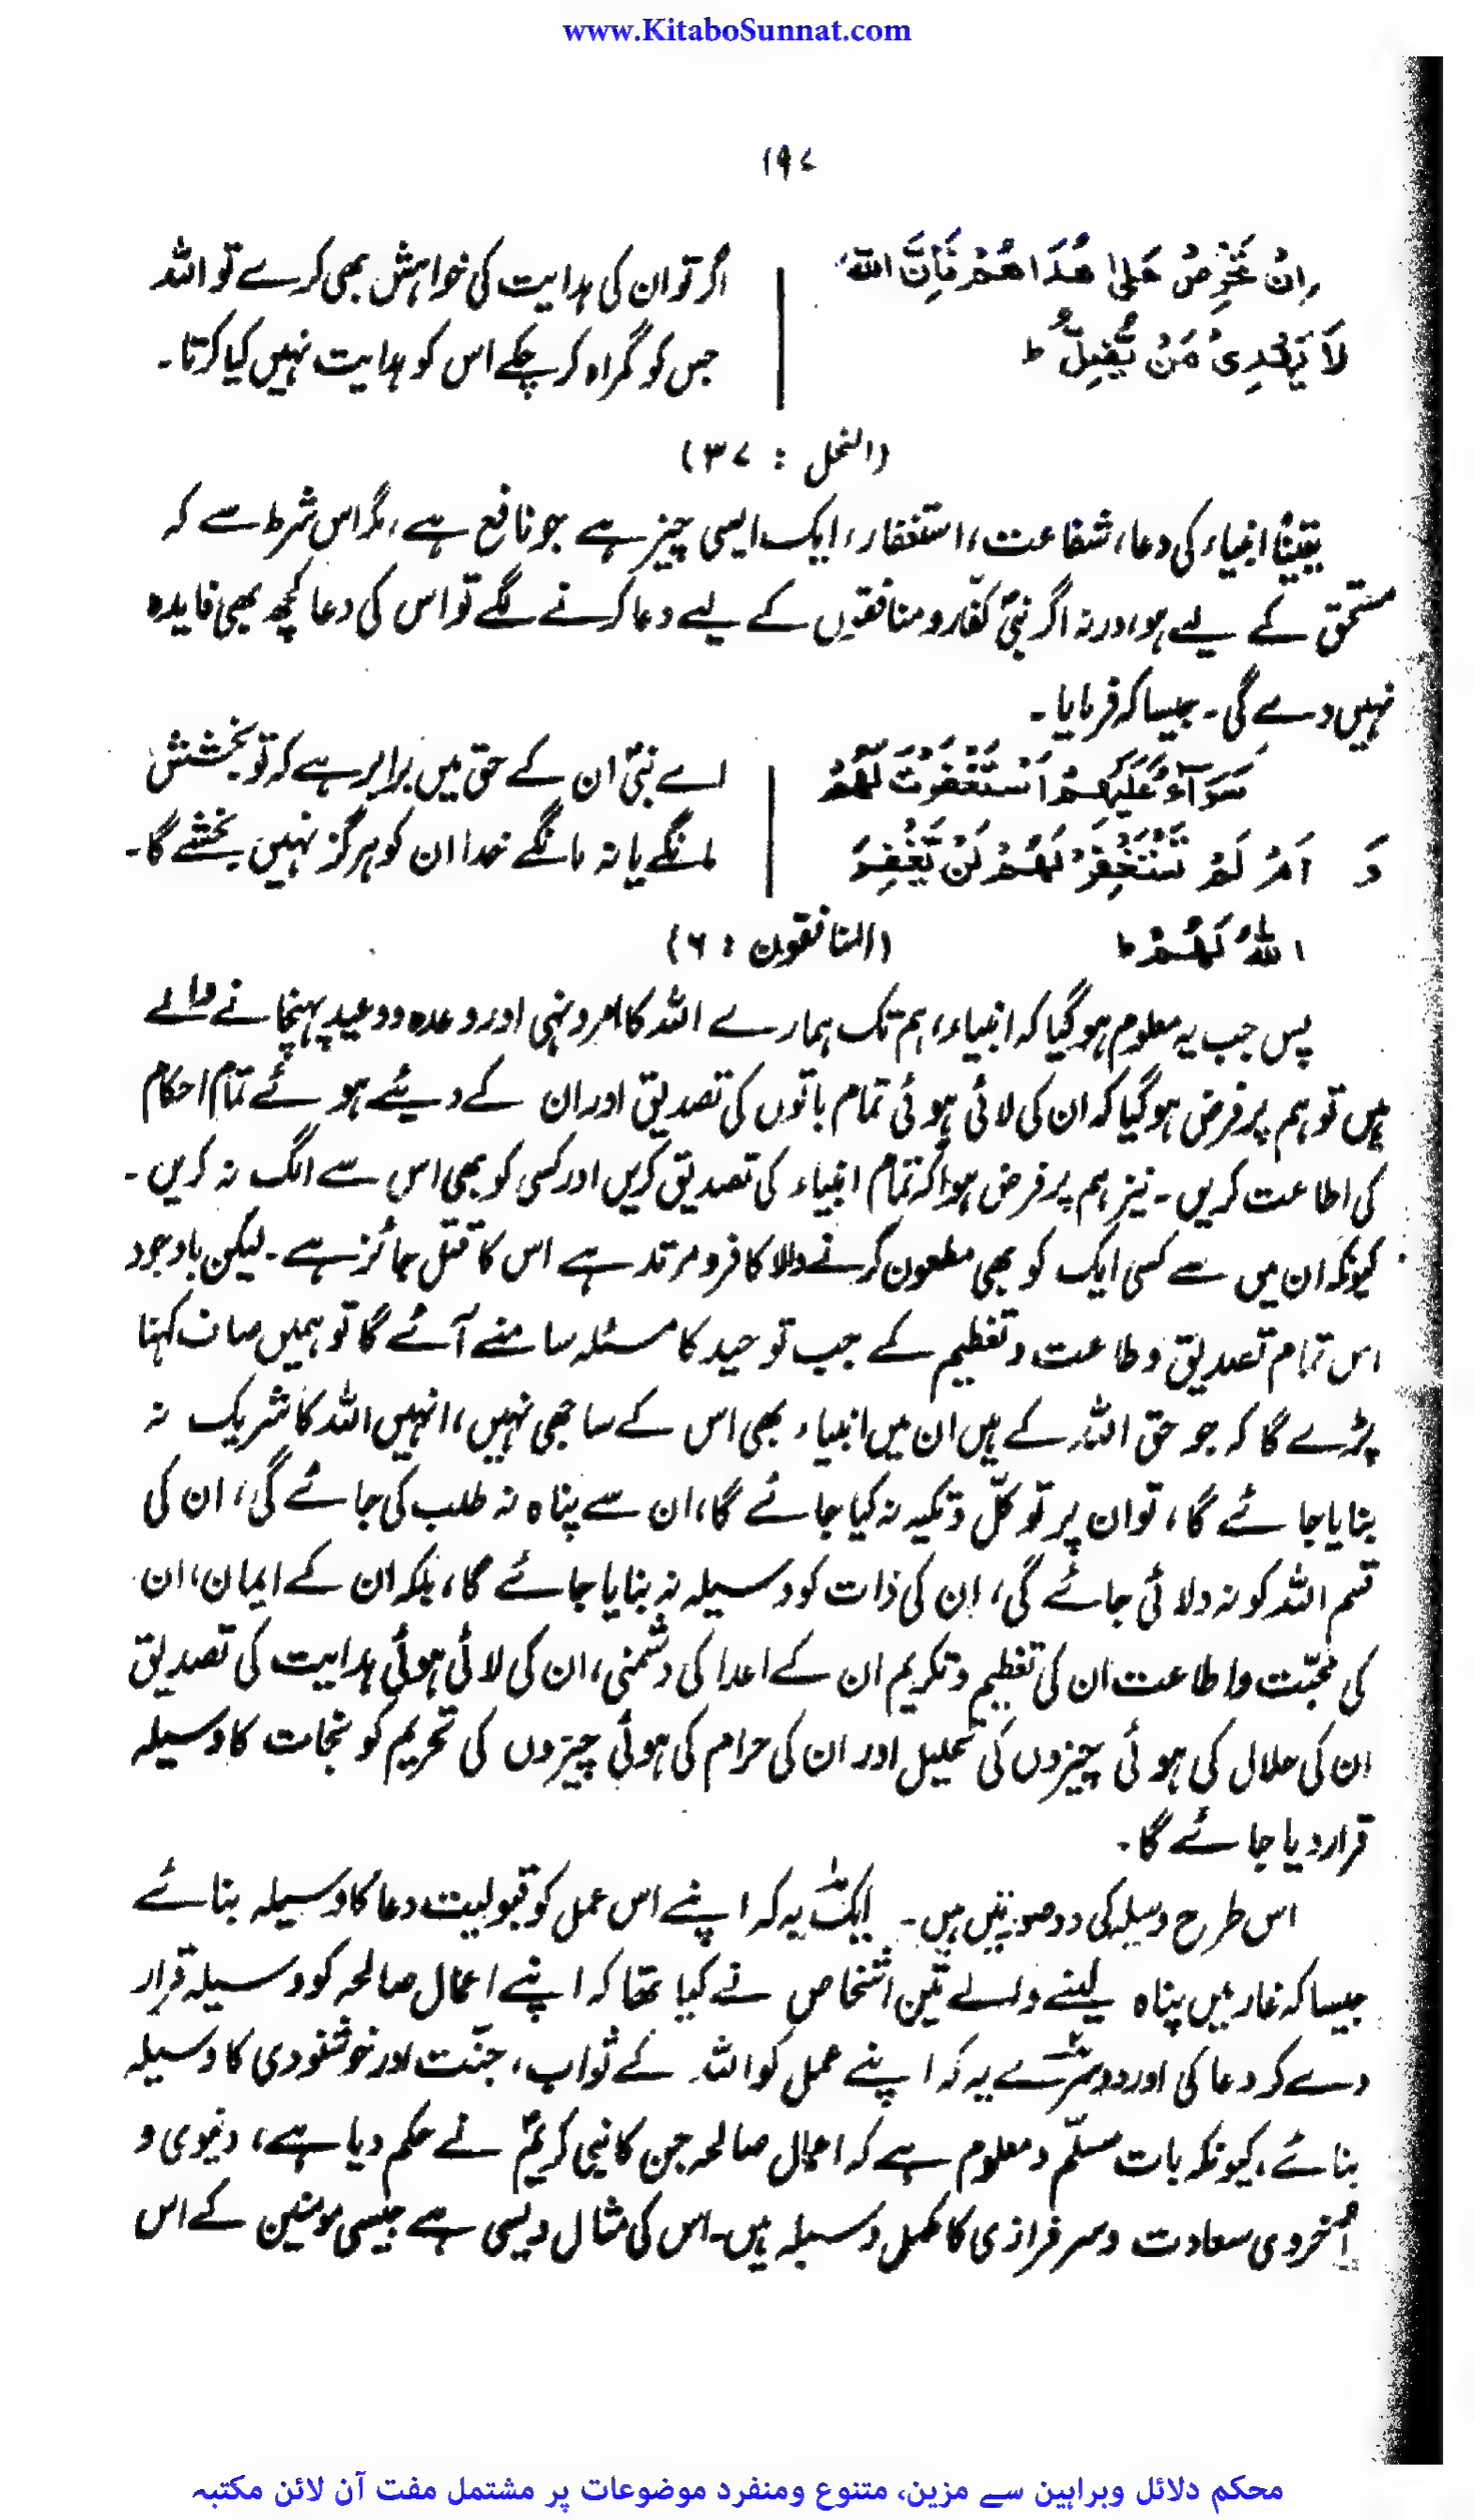 www.KitaboSunnat.com
۱۹۷
اِنْ تَحْرِصْ عَلٰی هُدَاهُمْ فَاِنَّ اللّٰهَ
لَا یَهْدِیْ مَنْ یُّضِلُّ ط
اگر تو ان کی ہدایت کی خواہش بھی کرے تو اللہ
جس کو گمراہ کر چکے اس کو ہدایت نہیں کیا کرتا۔
(النحل : ۳۷)
یقیناً انبیاء کی دعا، شفاعت، استغفار، ایک ایسی چیز ہے جو نافع ہے، مگر اس شرط سے کہ
مستحق کے لیے ہو، ورنہ اگر نبیؐ کفّار و منافقوں کے لیے دعا کرنے لگے تو اس کی دعا کچھ بھی فایدہ
نہیں دے گی۔ جیسا کہ فرمایا۔
سَوَآءٌ عَلَیْهِمْ اَسْتَغْفَرْتَ لَهُمْ
اَمْ لَمْ تَسْتَغْفِرْ لَهُمْ لَنْ یَّغْفِرَ
اللّٰهُ لَهُمْ ط
اے نبیؐ ان کے حق میں برابر ہے کہ تو بخشش
مانگے یا نہ مانگے خدا ان کو ہرگز نہیں بخشے گا۔
(المنافقون : ۶)
پس جب یہ معلوم ہو گیا کہ انبیاء، ہم تک ہمارے اللہ کا امر و نہی اور وعدہ و وعید پہنچانے والے
ہیں تو ہم پر فرض ہو گیا کہ ان کی لائی ہوئی تمام باتوں کی تصدیق اور ان کے دیئے ہوئے تمام احکام
کی اطاعت کریں۔ نیز ہم پر فرض ہوا کہ تمام انبیاء کی تصدیق کریں اور کسی کو بھی اس سے الگ نہ کریں۔
کیونکہ ان میں سے کسی ایک کو بھی مطعون کرنے والا کافر و مرتد ہے اس کا قتل جائز ہے۔ لیکن باوجود
اس تمام تصدیق و طاعت و تعظیم کے جب توحید کا مسئلہ سامنے آئے گا تو ہمیں صاف کہنا
پڑے گا کہ جو حق اللہ کے ہیں ان میں انبیاء بھی اس کے ساجھی نہیں، انہیں اللہ کا شریک نہ
بنایا جائے گا، تو ان پر توکّل و تکیہ نہ کیا جائے گا، ان سے پناہ نہ طلب کی جائے گی، ان کی
قسم اللہ کو نہ دلائی جائے گی، ان کی ذات کو وسیلہ نہ بنایا جائے گا، بلکہ ان کے ایمان، ان
کی محبّت و اطاعت ان کی تعظیم و تکریم ان کے اعدا کی دشمنی، ان کی لائی ہوئی ہدایت کی تصدیق
ان کی حلال کی ہوئی چیزوں کی تحلیل اور ان کی حرام کی ہوئی چیزوں کی تحریم کو نجات کا وسیلہ
قرار دیا جائے گا۔
اس طرح وسیلہ کی دو صورتیں ہیں۔ ایک یہ کہ اپنے اس عمل کو قبولیت دعا کا وسیلہ بنائے
جیسا کہ غار میں پناہ لینے والے تین اشخاص نے کیا تھا کہ اپنے اعمال صالحہ کو وسیلہ قرار
دے کر دعا کی اور دوسرے یہ کہ اپنے عمل کو اللہ کے ثواب، جنّت اور خوشنودی کا وسیلہ
بنائے، کیونکہ بات مسلّم و معلوم ہے کہ اعمال صالحہ جن کا نبی کریمؐ نے حکم دیا ہے، دنیوی و
اُخروی سعادت و سرفرازی کا مکمل وسیلہ ہیں۔ اس کی مثال ویسی ہے جیسی مومنین کے اس
محکم دلائل وبراہین سے مزین، متنوع ومنفرد موضوعات پر مشتمل مفت آن لائن مکتبہ